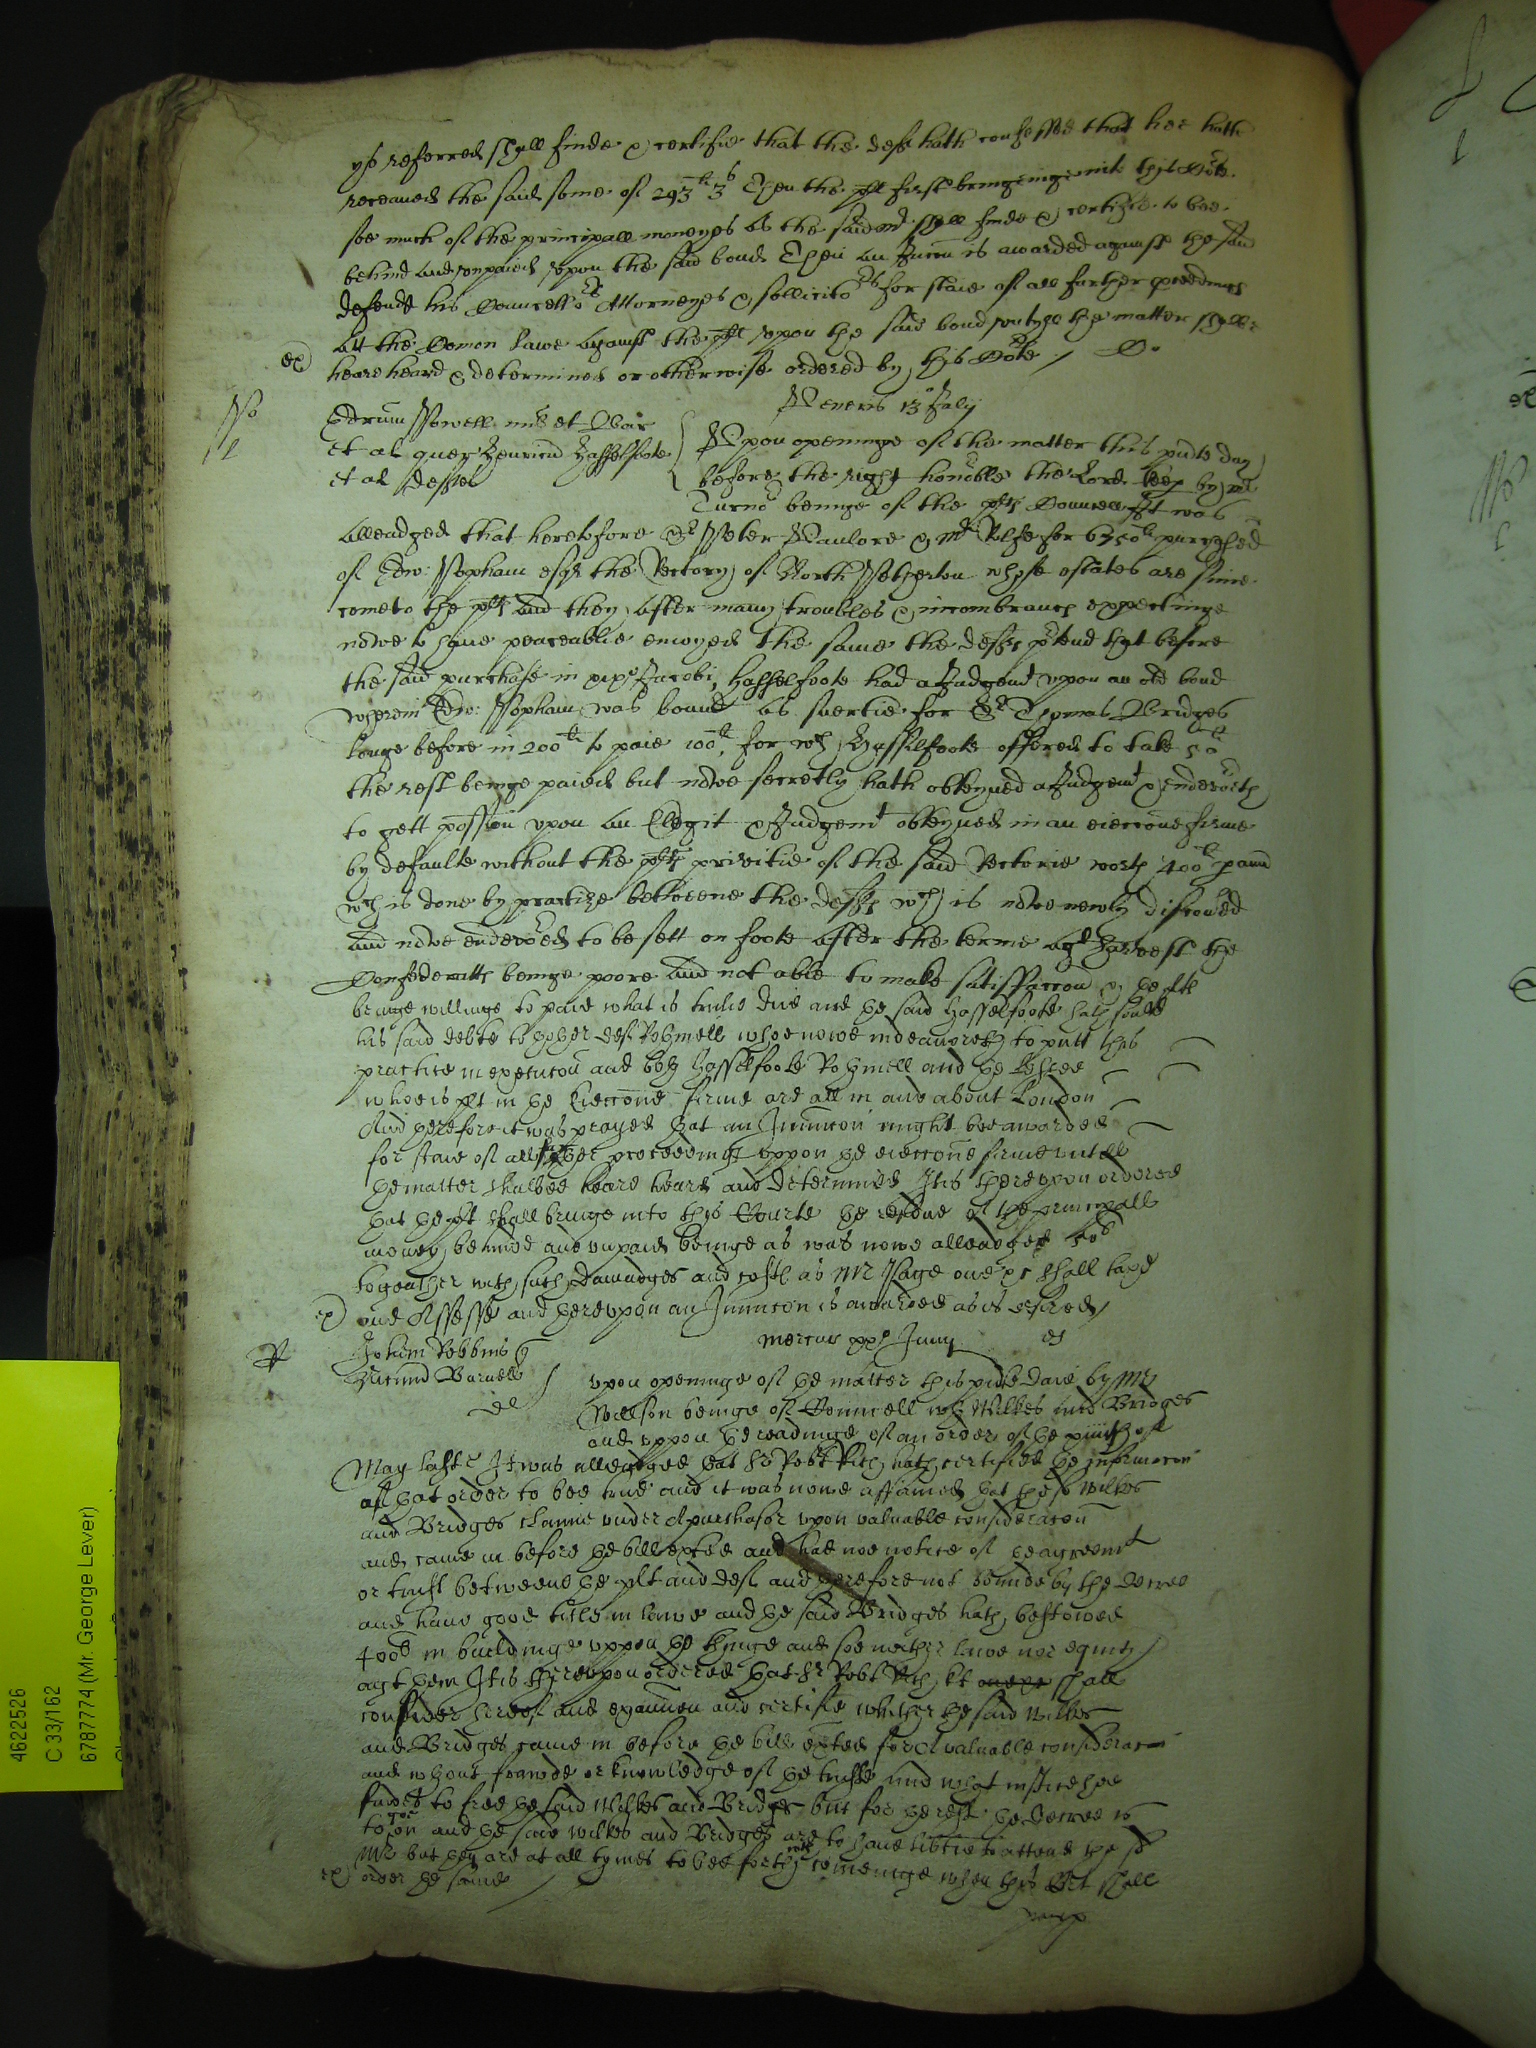 yt is referred shall finde & certifie that the deft hath confessed that hee hath
receaved the said some of 293li 3s Then the plt first bringinge into this Cort
soe much of the principall moneyes as the said Mr shall finde & certifie to bee
behind and vnpaied vpon the said bond Then an Iniuncon is awarded against the said
defendt his Councellors Attorneyes & sollicitors for staie of all further proceedings
att the Comon Lawe against the plt vpon the said bond vntill the matter shalbe
heare heard & determined or otherwise ordered by this Cort
ex
Veneris 13 Julij
Edrum Powell mil et Bar
et al quer Henricu Hasselfoote
et al deftes
Vpon openinge of the matter this pnte day
before the right honoble the Lord keep by Mr
Turnor beinge of the plts Councell It was
alleadged that heretofore Sr Peter Vanlore & Mr Rolfe for 6750li purchased
of Edw: Popham esqr the Rectory of North Petherton whose estates are since
come to the plts And they after many troubles & incombrances expectinge
nowe to haue peaceablie enioyed the same the defts ptend that before
the said purchase in Jacobi Hasselfoote had a Judgemt vpon an old bond
wherein Edw: Popham was bound as suertie for Sr Thomas Bridges
longe before in 200li to paie 100li for wch Hasselfoote offered to take 50li
the rest beinge paied but nowe secretly hath obteyned a Judgemt & endevoreth
to gett possion vpon an Elegit & Judgemt obteyned in an eieccone firme
by defaulte without the plts privitie of the said Rectorie worth 400li p ann
wch is done by practize betweene the defts wch is nowe newly discouered
And nowe endevored to be sett on foote after the terme agt Harvest the
Confederattes beinge poore and not able to make satisfaccon & the plts
beinge willinge to paie what is trulie due and the said Hasselfoote hath
his said debte to the other deft whoe nowe indeavoreth to putt this
practice in execucon and both Hasselfoote and the Lessee
whoe is plt in the Eieccone firme are all in and about London
And therefore it was prayed that an Iniuncon might bee awarded
for staie of all further proceedings vppon the eieccone firme vntill
the matter shalbee heare heard and determined It is therevpon ordered
that the plt shall bringe into this Courte the residue of the principall
money behinde and vnpaid beinge as was nowe alleadged 50li
togeather with such damadges and costs as Mr Page one &c shall taxe
and Assesse and therevpon an Iniuncon is awarded as is desired
ex
Mercur xxo Juny
Johem Robbins q
Ricund Barnell
del
vpon openinge of the matter this pnte daie by Mr
Willson beinge of Councell wth Wilkes and Bridges
and vppon the readinge of an order of the xiiiith of
May laste It was alleadged that Sr Robt Rich hath certified the informacon
of that order to bee true and it was nowe affirmed that the sd Wilkes
and Bridges claime vnder A purchasor vpon valuable consideracon
and came in before the bill exhted and had noe notice of the agreemt
or trust betweene the plt and deft and therefore not bounde by the decree
and have good title in lawe and the said Bridges hath bestowed
400li in buildinge vppon the thinge and soe neither lawe nor equity
agt them It is therevpon ordered that Sr Robt Rich kt shall
consider hereof and examine and certifie whither the said Wilkes
and Bridges came in before the bill exhted for A valuable consideracon
and wthout frawde or knowledge of the trust and what iustice hee
findes to free the said Wilkes and Bridges but for the rest the decree is
to goe on and the said Wilkes and Bridges are to haue libtie to attend the sd
Mr but they are at all tymes to bee forth comeinge when this Cort shall
ex
order the same
4622526
C 33/162
6787774 (Mr. George Lever)